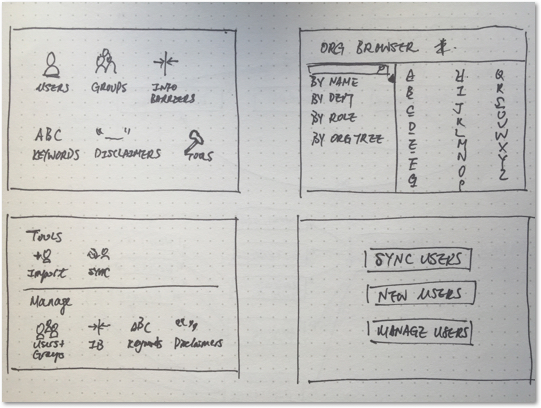 USERS GROUPS INFO
BARRIERS
ABC "__"
KEYWORDS DISCLAIMERS TOOLS
ORG BROWSER *
BY NAME
BY DEPT
BY ROLE
BY ORG TREE
A
B
C
D
E
F
G
H
I
J
K
L
M
N
O
P
Q
R
S
U
V
W
X
Y
Z
Tools
Import Sync
Manage
ABC "__"
Users+ IB Keywords Disclaimers
Groups
SYNC USERS
NEW USERS
MANAGE USERS